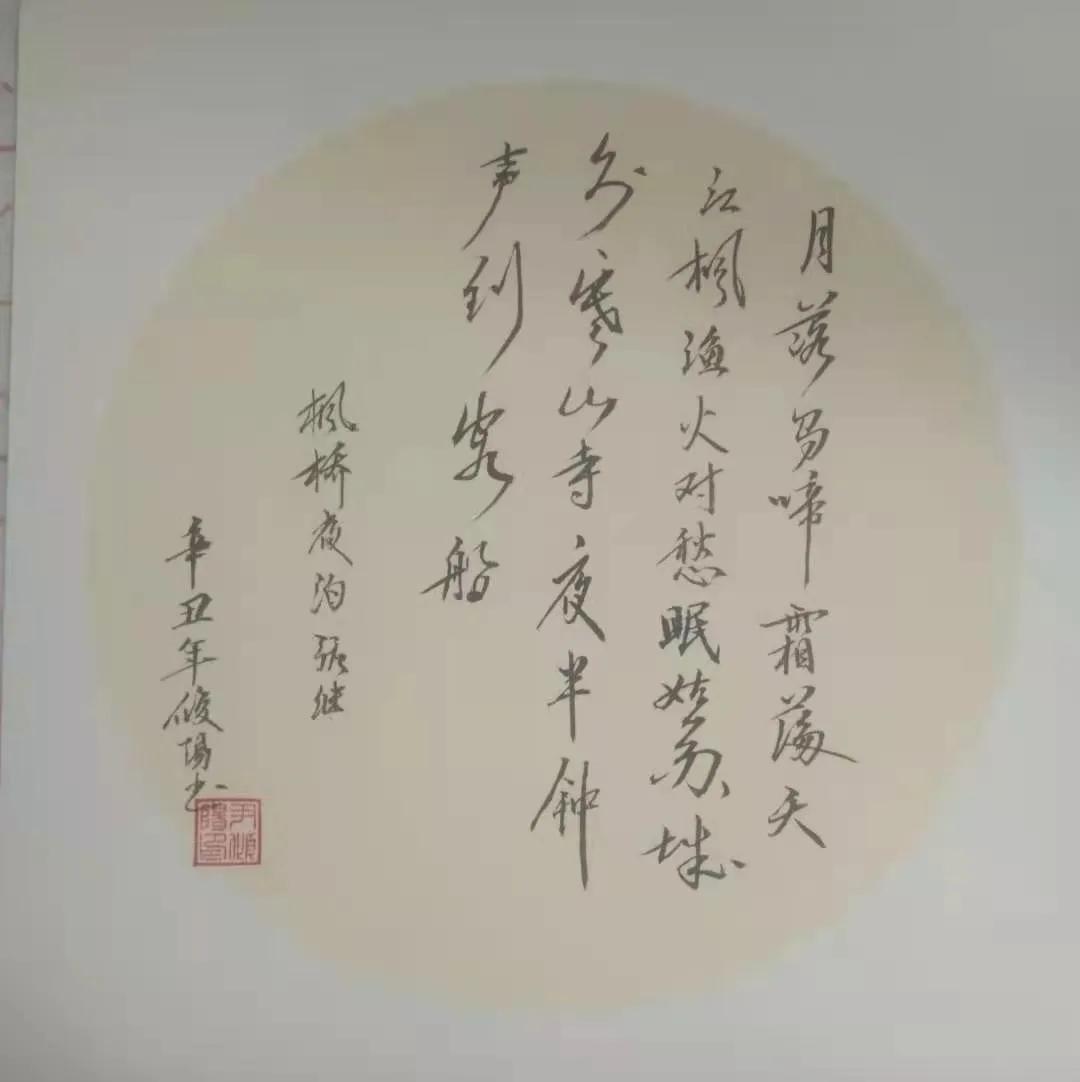 月落乌啼霜满天
江枫渔火对愁眠姑苏城
外寒山寺夜半钟
声到客船
枫桥夜泊张继
辛丑年俊陽书